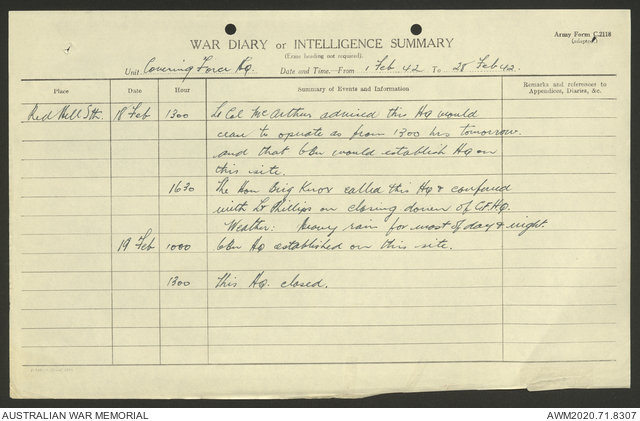 Army Form C.2118
(adapted)
WAR DIARY or INTELLIGENCE SUMMARY
(Erase heading not required).
Unit Covering Force Hq. Date and Time.—From 1 Feb 42 To 28 Feb 42.
Place Date Hour Summary of Events and Information Remarks and references to Appendices, Diaries, &c.
Red Hill Sth. 18 Feb 1300 Lt Col McArthur advised this HQ would
cease to operate as from 1300 hrs tomorrow
and that would establish HQ on
this site.
1630 The Hon Brig Knox called this HQ & conferred
with Lt Phillips on closing down of C.F.HQ.
Weather: Heavy rain for most of day & night.
19 Feb 1000 HQ established on this site.
1300 This HQ. closed.
AUSTRALIAN WAR MEMORIAL
AWM2020.71.8307